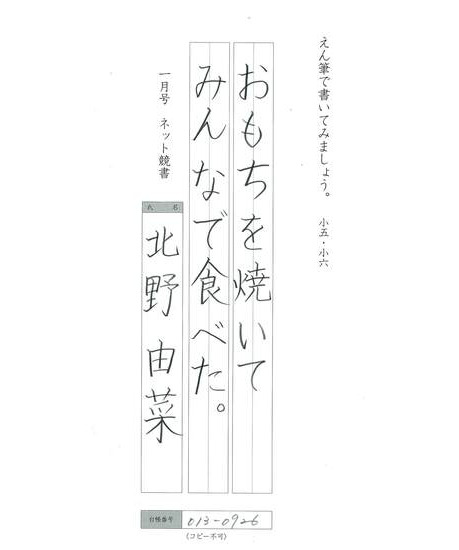 えん筆で書いてみましょう。 小五・小六
おもちを焼いて
みんなで食べた。
一月号 ネット競書
氏名
北野 由菜
台帳番号 013-0926
(コピー不可)